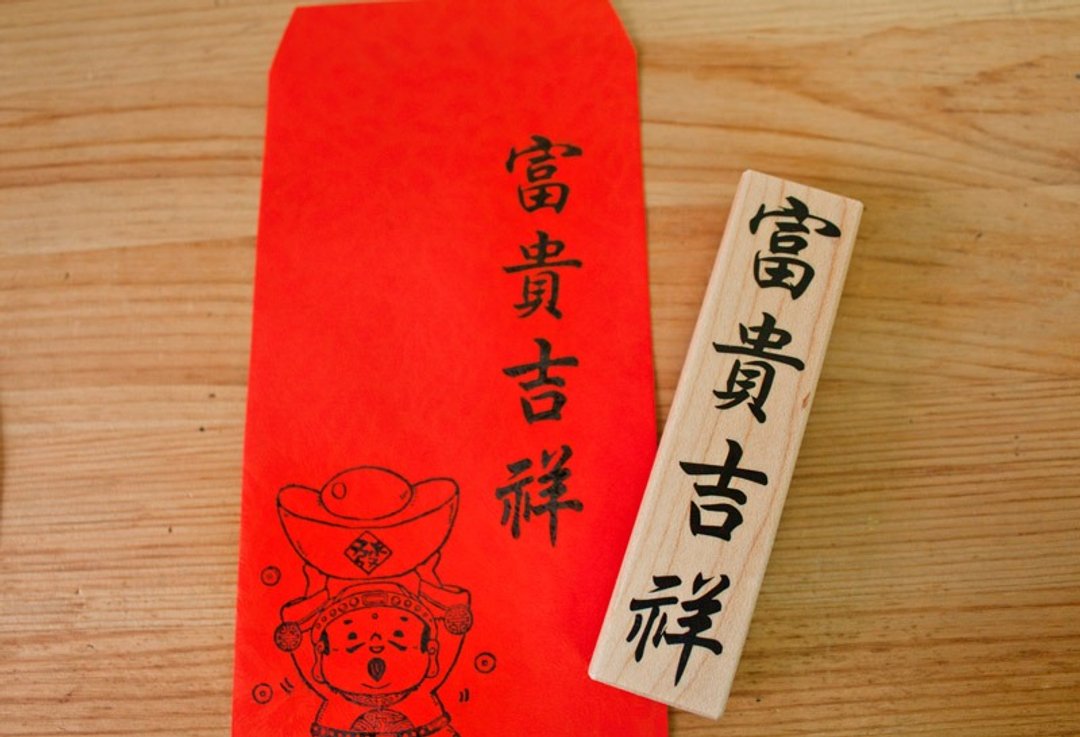 富貴吉祥
發
富貴吉祥